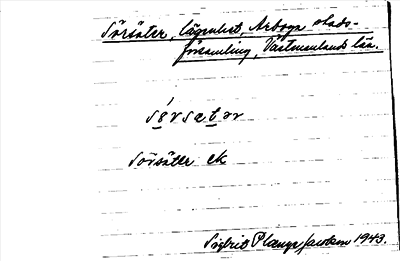 Sörsäter, lägenhet, Arboga stads-
församling, Västmanlands län.
sö́rsætər
Sörsäter ek
Sigfrid 1943.